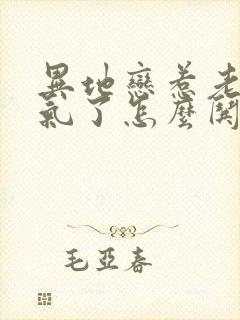 異地戀惹老
氣了怎麼開
毛亞春